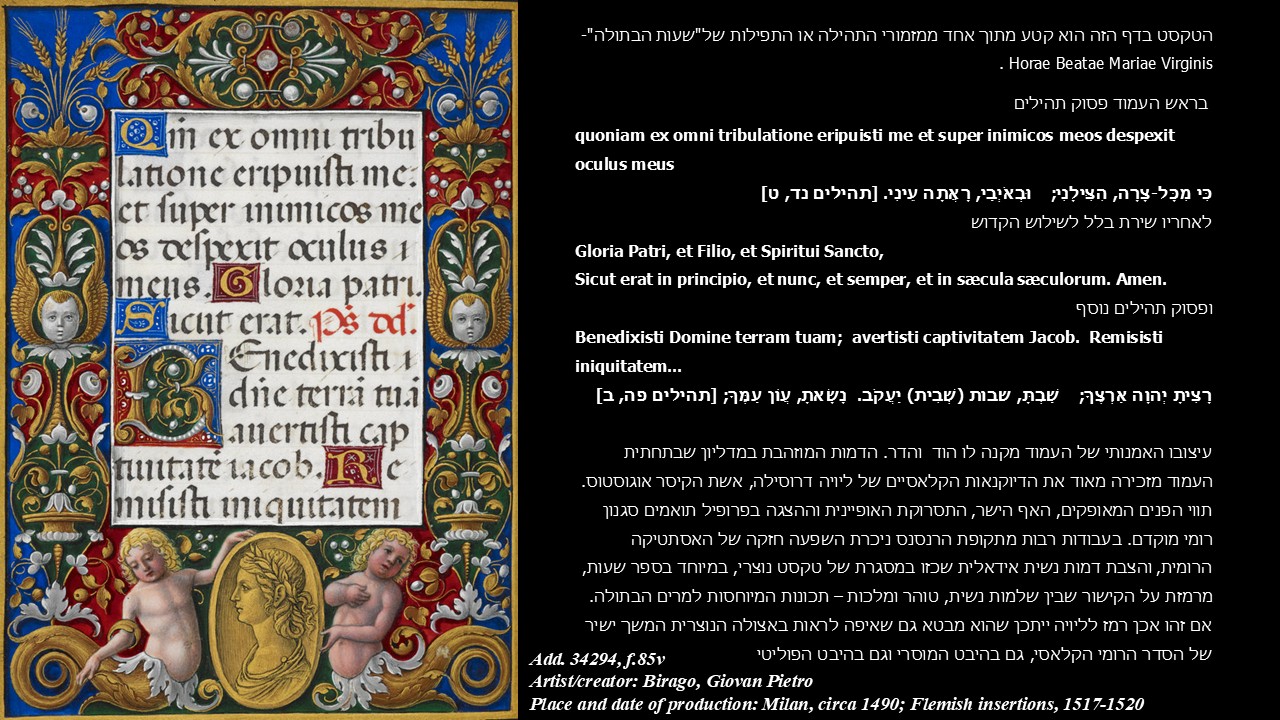 Qm̄ ex omni tribu
latione eripuisti me:
et super inimicos me
os despexit oculus
meus. Gloria patri.
Sicut erat. Ps̄ dd̄.
Benedixisti
dn̄e terrā tuā
auertisti cap
tiuitatē iacob. Re
misisti iniquitatem
הטקסט בדף הזה הוא קטע מתוך אחד ממזמורי התהילה או התפילות של"שעות הבתולה"-
Horae Beatae Mariae Virginis .
בראש העמוד פסוק תהילים
quoniam ex omni tribulatione eripuisti me et super inimicos meos despexit
oculus meus
כִּי מִכָּל-צָרָה, הִצִּילָנִי; וּבְאֹיְבַי, רָאֲתָה עֵינִי. [תהילים נד, ט]
לאחריו שירת בלל לשילוש הקדוש
Gloria Patri, et Filio, et Spiritui Sancto,
Sicut erat in principio, et nunc, et semper, et in sæcula sæculorum. Amen.
ופסוק תהילים נוסף
Benedixisti Domine terram tuam; avertisti captivitatem Jacob. Remisisti
iniquitatem...
רָצִיתָ יְהוָה אַרְצֶךָ; שַׁבְתָּ, שבות (שְׁבִית) יַעֲקֹב. נָשָׂאתָ, עֲוֺן עַמֶּךָ; [תהילים פה, ב]
עיצובו האמנותי של העמוד מקנה לו הוד והדר. הדמות המוזהבת במדליון שבתחתית
העמוד מזכירה מאוד את הדיוקנאות הקלאסיים של ליויה דרוסילה, אשת הקיסר אוגוסטוס.
תווי הפנים המאופקים, האף הישר, התסרוקת האופיינית וההצגה בפרופיל תואמים סגנון
רומי מוקדם. בעבודות רבות מתקופת הרנסנס ניכרת השפעה חזקה של האסתטיקה
הרומית, והצבת דמות נשית אידאלית שכזו במסגרת של טקסט נוצרי, במיוחד בספר שעות,
מרמזת על הקישור שבין שלמות נשית, טוהר ומלכות – תכונות המיוחסות למרים הבתולה.
אם זהו אכן רמז לליויה ייתכן שהוא מבטא גם שאיפה לראות באצולה הנוצרית המשך ישיר
של הסדר הרומי הקלאסי, גם בהיבט המוסרי וגם בהיבט הפוליטי
Add. 34294, f.85v
Artist/creator: Birago, Giovan Pietro
Place and date of production: Milan, circa 1490; Flemish insertions, 1517-1520